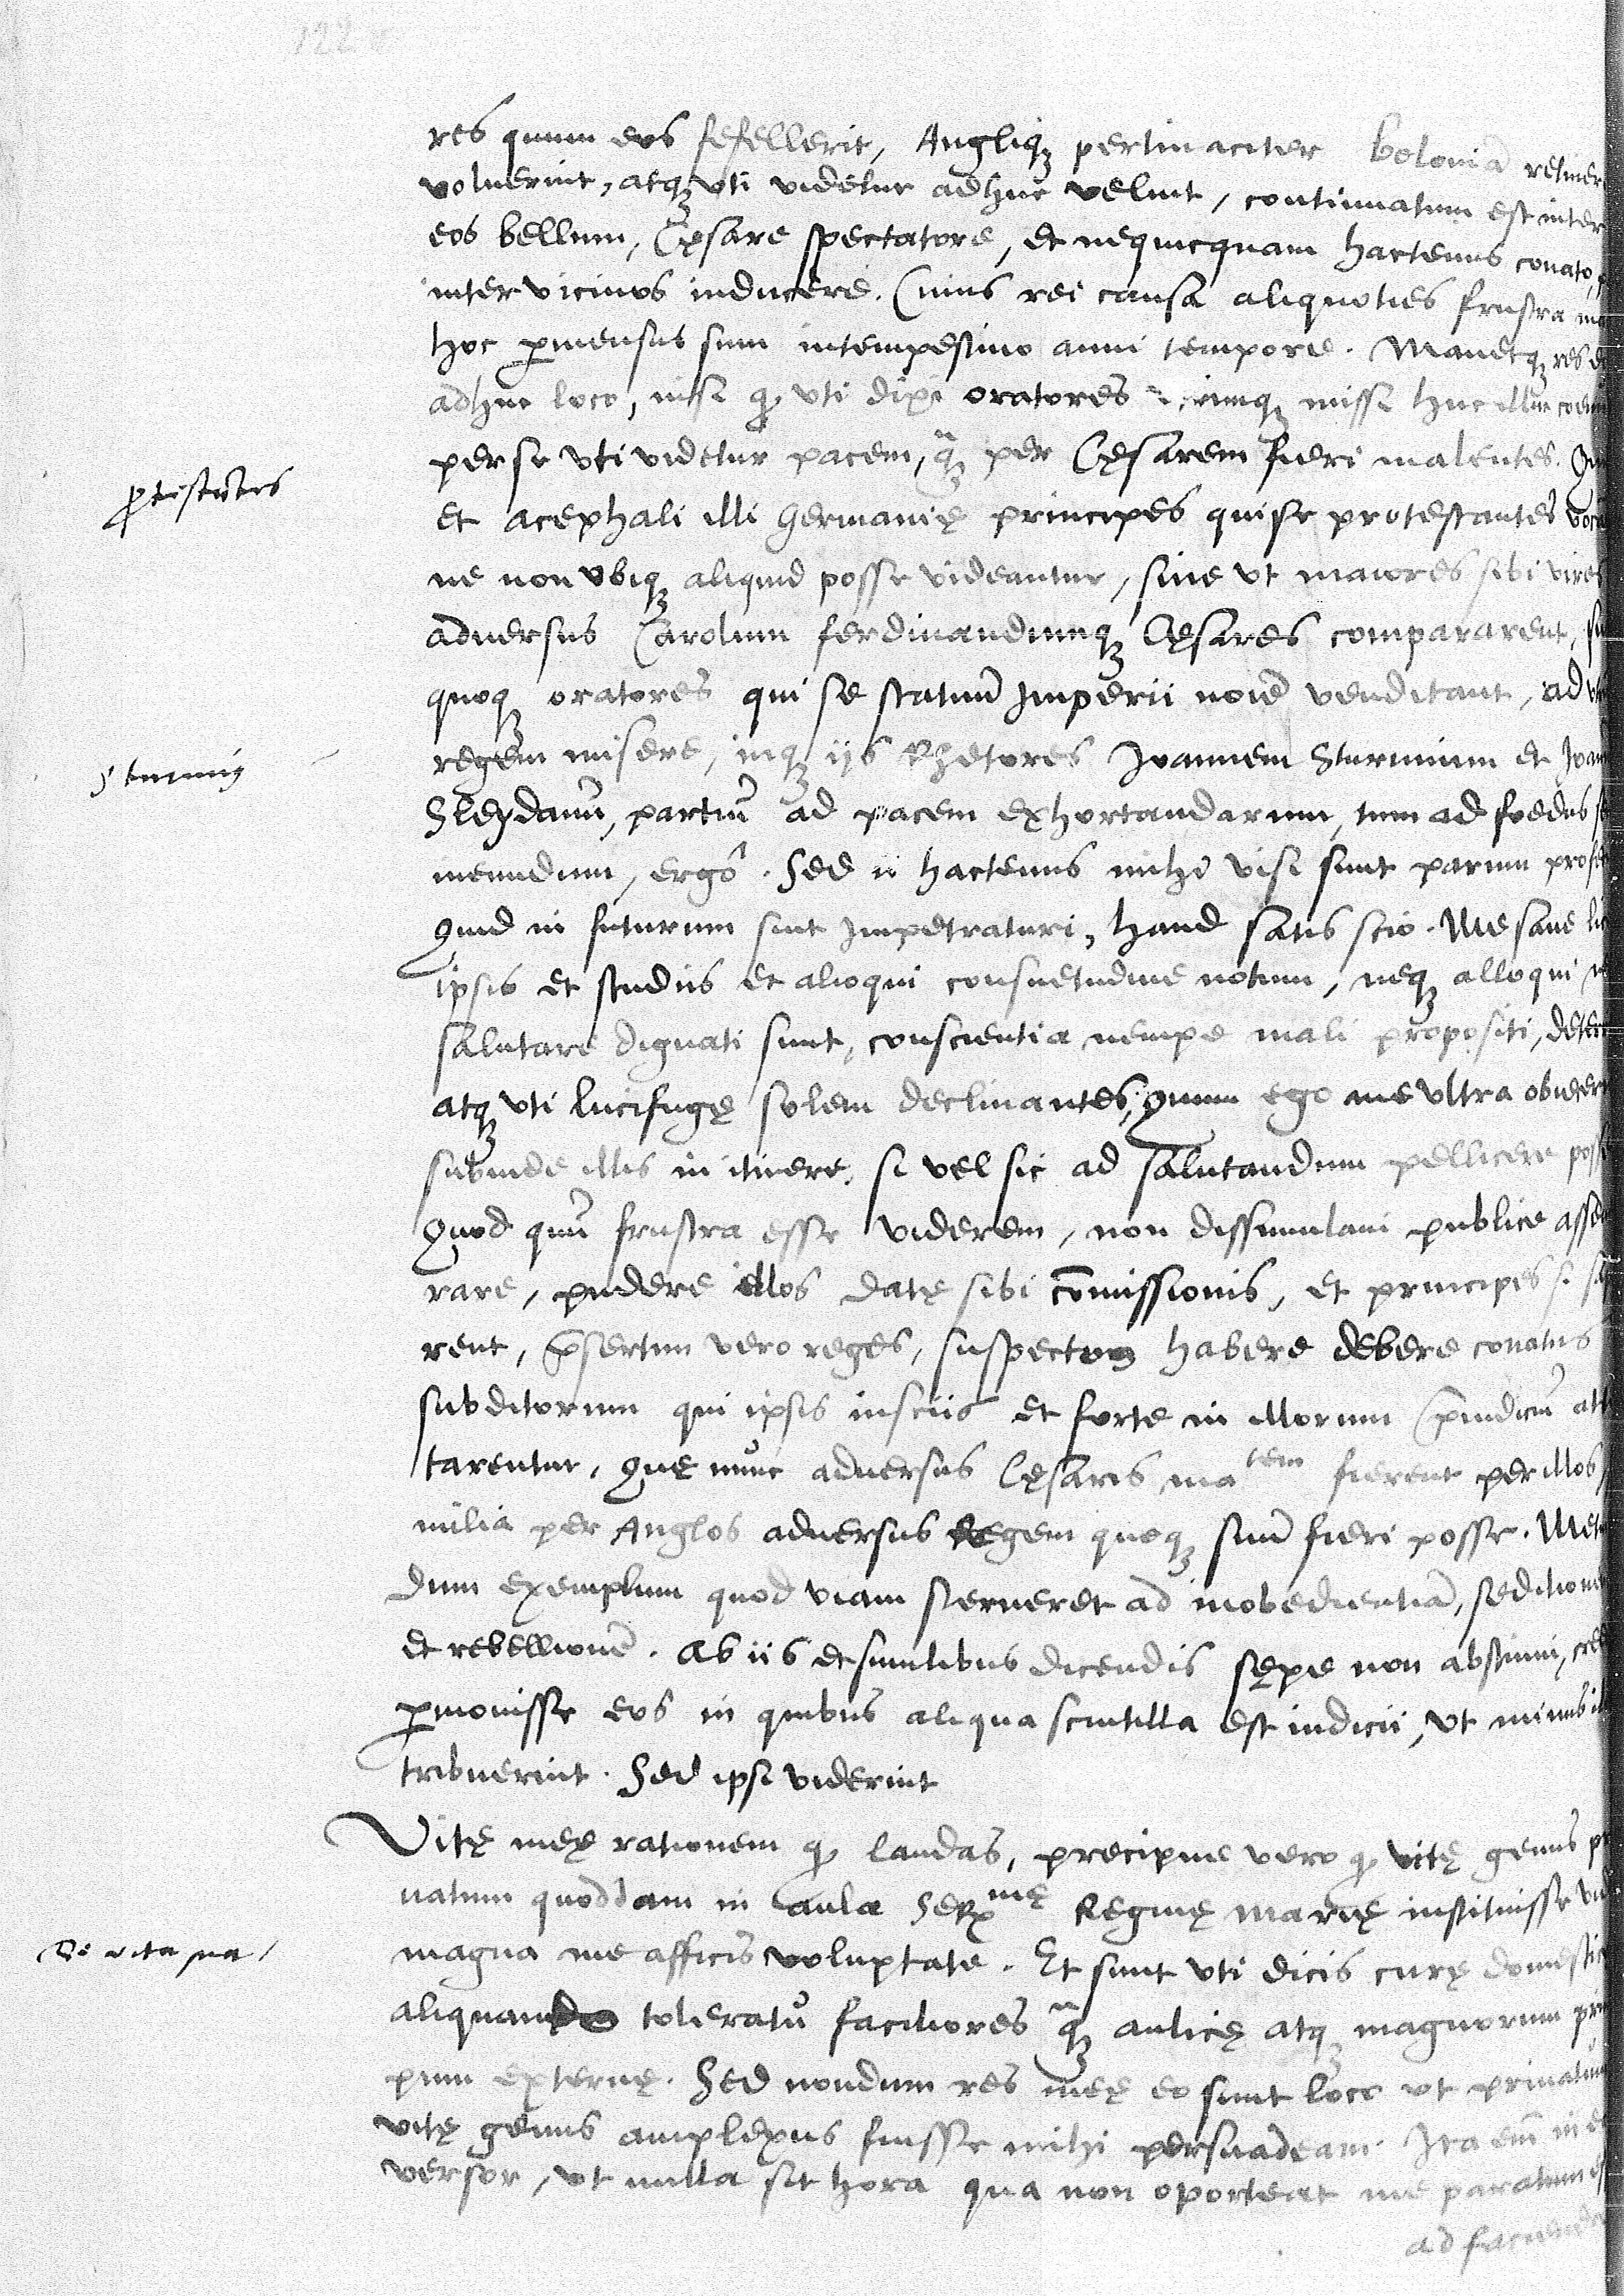 122
res quum eos fefellerit, Angliqz pertinaciter boloniā retiner
voluerint, atqz vti videtur adhuc velint, continuatum est inter
eos bellum, Cęsare spectatore, et nequicquam hactenus conato,
inter vicinos inducere. Cuius rei causa aliquoties frustra
hoc pmensus sum intempestiuo anni tempore. Manetqz res
adhuc loco, nisi qp vti dixi oratores missi huc illuc
per se vti videtur pacem, qz per Cęsarem fieri malentes.
protestātes
et acephali illi Germanię principes qui se protestantes
ne non vbiqz aliquid posse videantur, siue vt maiores sibi vires
aduersus Carolum ferdinandumqz Cęsares compararent,
quoqz oratores qui se statuū Imperii noīe venditant, ad
Sturmius
regem misere, inqz ijs Rhetores Joannem Sturmium et
Sleydanū, partiū ad pacem exhortandarum, tum ad foedus
ineundum, ergô. Sed ii hactenus mihi visi sunt parum
Quid in futurum sint impetraturi, haud satis scio. Me sane
ipsis et studiis et alioqui consuetudine notum, neqz alloqui
salutare dignati sunt, conscientia nempe mali propositi,
atqz vti lucifugę solem declinantes, Quum ego me vltra
subinde illis in itinere, si vel sic ad salutandum pellicere
Quod quū frustra esse viderem, non dissimulaui publice
rare, pudere illos datę sibi cōmissionis, et principes si
rent, pręsertim vero reges, suspectos habere debere conatus
subditorum qui ipsis insciis et forte in illorum pręiudiciū
tarentur, Quę nunc aduersus Cęsaris ma tem fierent per illos,
milia per Anglos aduersus Regem quoqz suū fieri posse.
dum exemplum quod viam sterneret ad inobedientiā, seditionem
et rebellionē. Ab iis et similibus dicendis sępe non abstinui,
pmouisse eos in quibus aliqua scintilla est iudicii, vt minus
tribuerint. Sed ipsi viderint
Vitę meę rationem qp laudas, precipue vero qp vitę genus
uatum quoddam in aula Ser mę Reginę Marię instituisse
De vita sua
magna me afficis voluptate. Et sunt vti dicis curę
aliquando toleratū faciliores qz aulicę atqz magnorum
pum externę. Sed nondum res meę eo sunt loco vt priuatum
vitę genus amplexus fuisse mihi persuadeam. Ita eīm in
versor, vt nulla sit hora qua non oporteat me paratum
ad